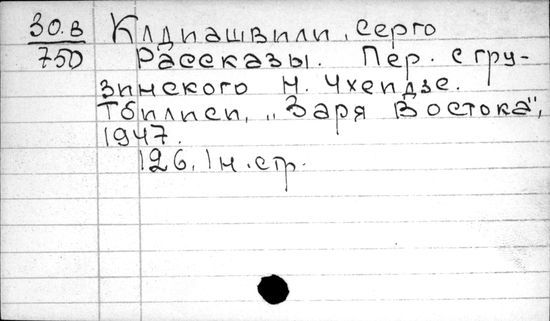 30.в Клдиашвили, Серго
750 Рассказы. Пер. с гру-
зинского Н. Чхеидзе.
Тбилиси, „Заря Востока",
1947.
126, 1 н. стр.